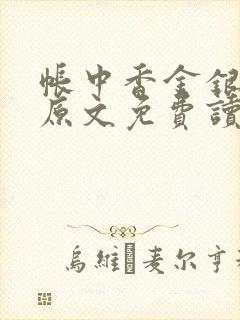 帳中香金銀
原文免費讀
烏維·麦尔亨